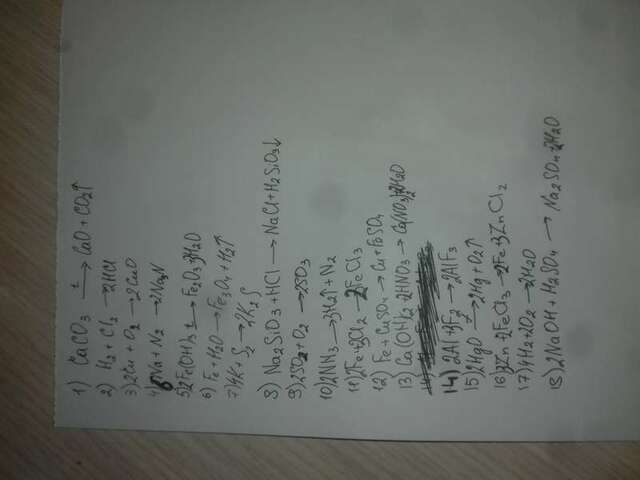 1) CaCO3 t→ CaO + CO2↑
2) H2 + Cl2 → 2HCl
3) 2Cu + O2 → 2CuO
4) 6Na + N2 → 2Na3N
5) 2Fe(OH)3 t→ Fe2O3 + 3H2O
6) Fe + H2O → Fe3O4 + H2↑
7) 4K + S2 → 2K2S
8) Na2SiO3 + HCl → NaCl + H2SiO3↓
9) 2SO2 + O2 → 2SO3
10) 2NH3 → 3H2↑ + N2
11) 2Fe + 3Cl2 → 2FeCl3
12) Fe + CuSO4 → Cu + FeSO4
13) Ca(OH)2 + 2HNO3 → Ca(NO3)2 + 2H2O
14) 2Al + 3F2 → 2AlF3
15) 2HgO t→ 2Hg + O2↑
16) 3Zn + 2FeCl3 → 2Fe + 3ZnCl2
17) 4H2 + 2O2 → 2H2O
18) 2NaOH + H2SO4 → Na2SO4 + 2H2O